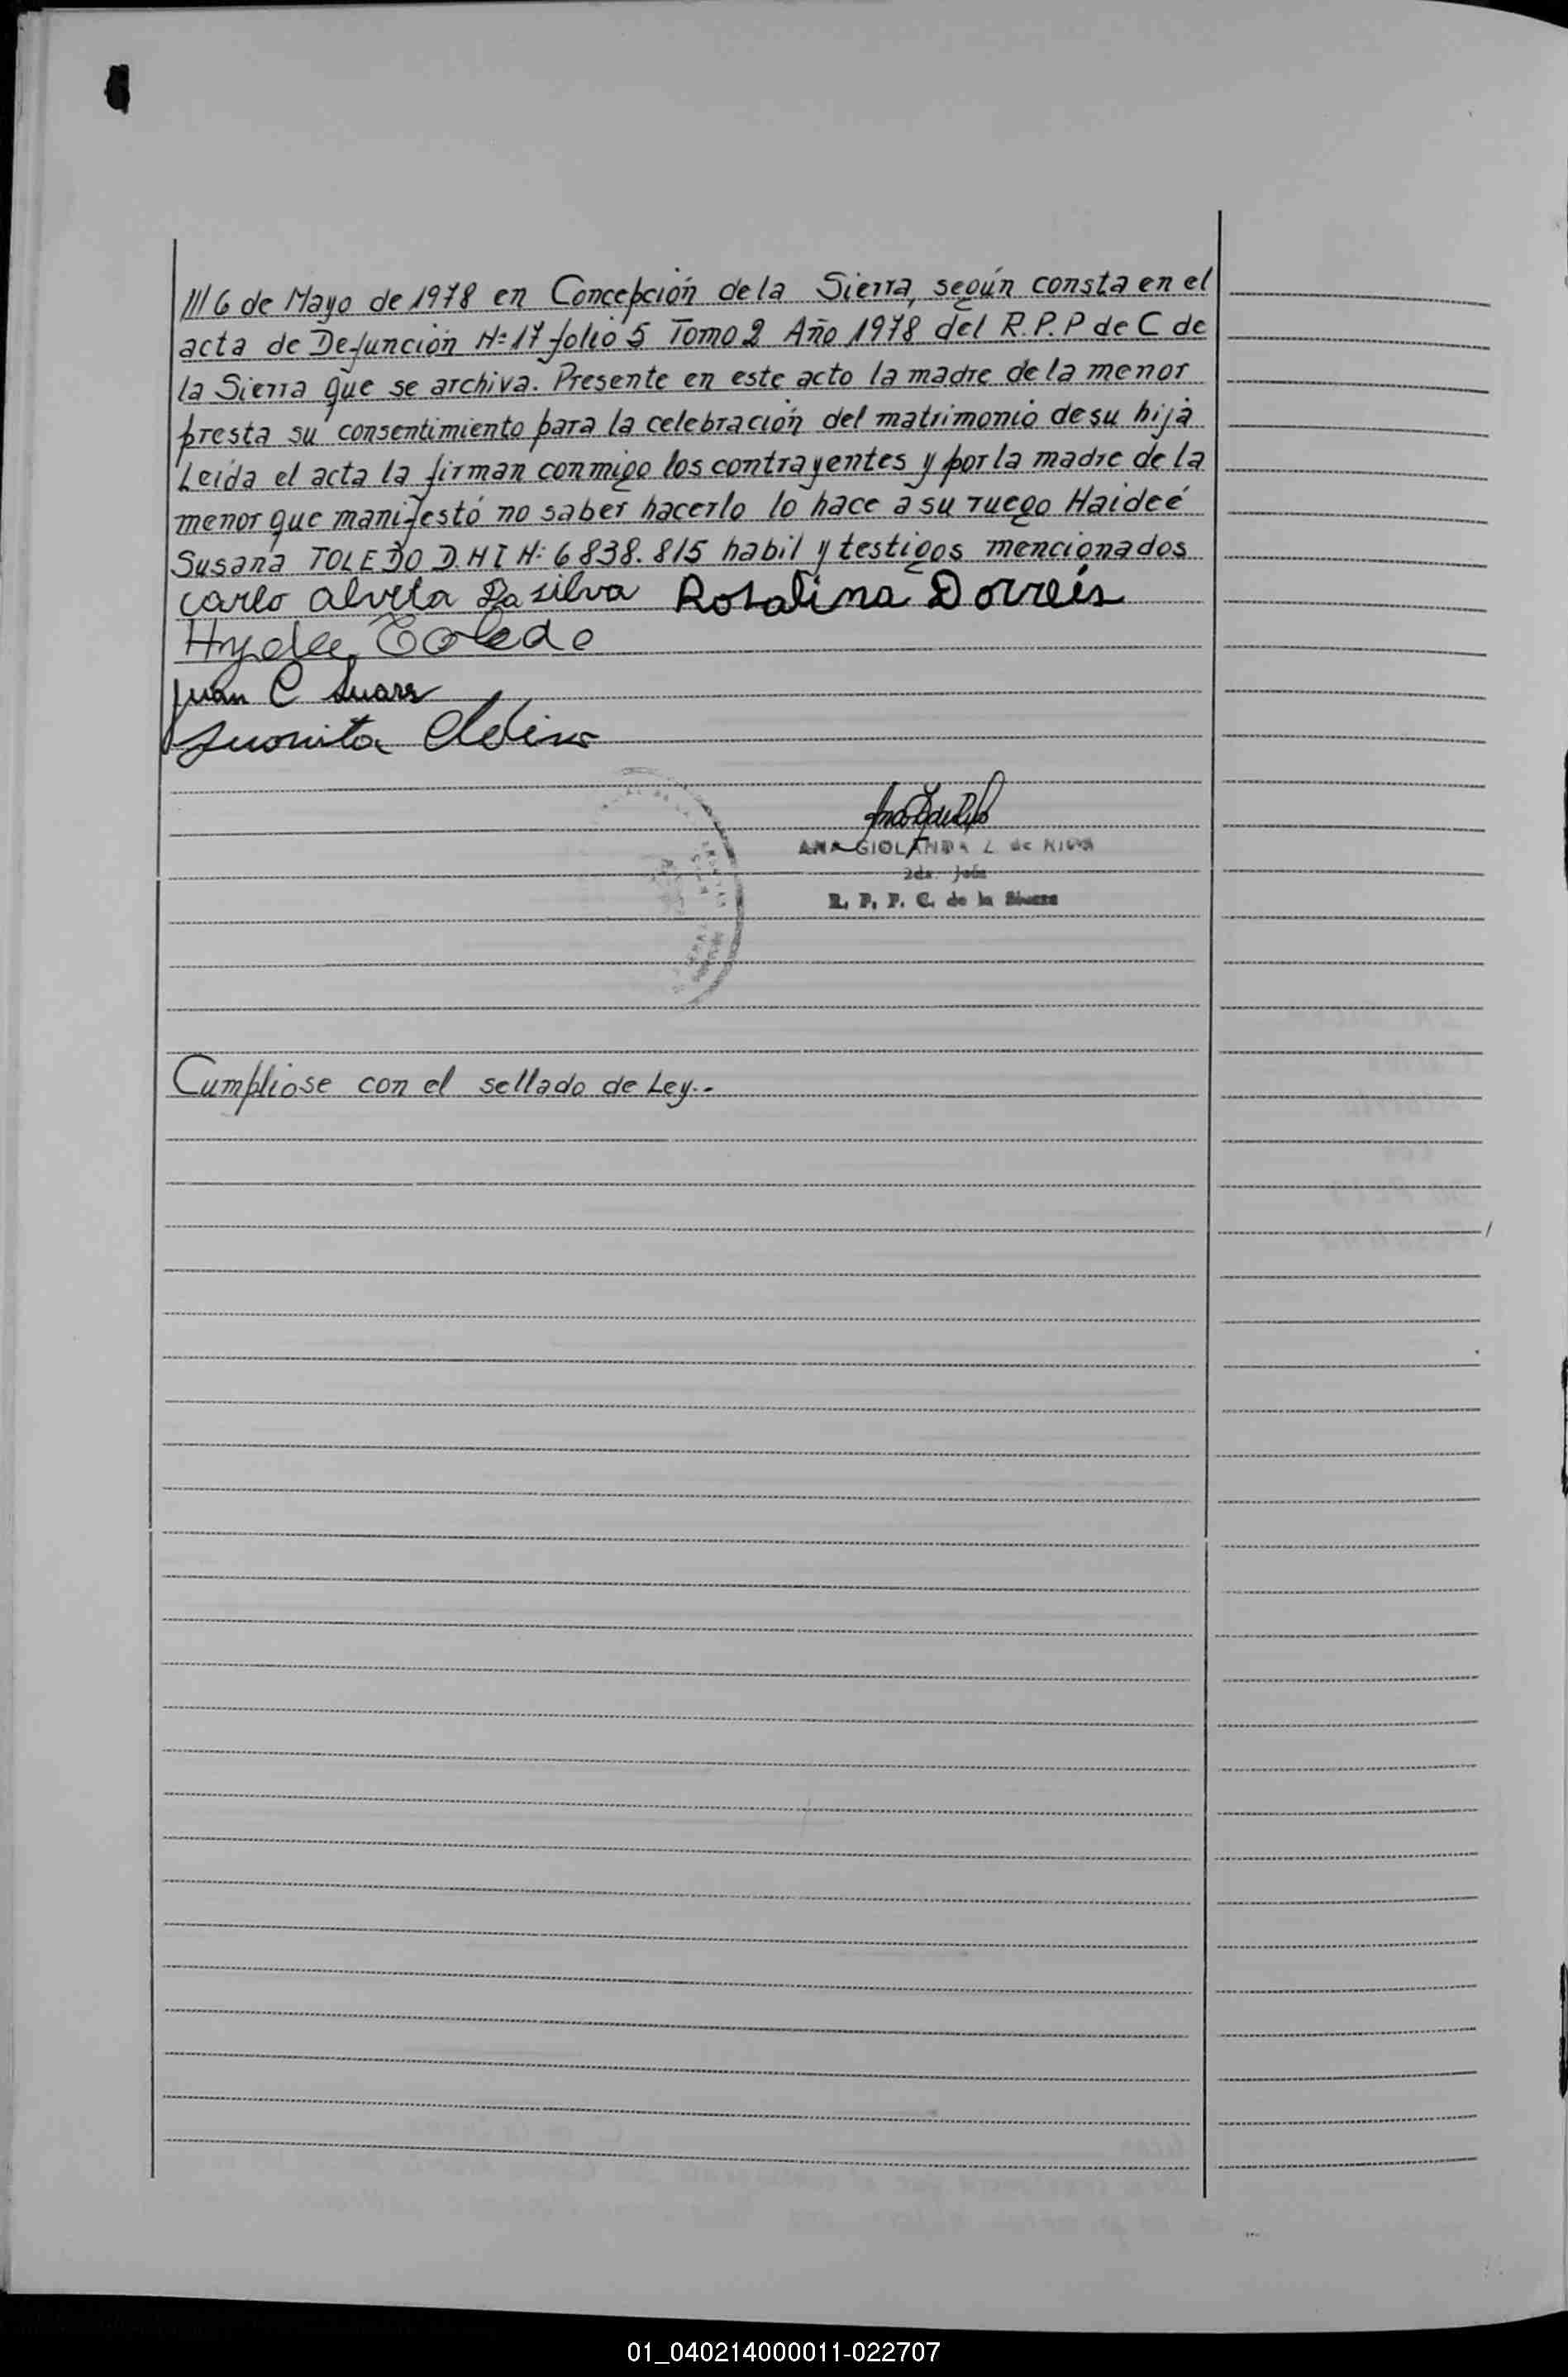 /// 6 de Mayo de 1978 en Concepción de la Sierra, según consta en el
acta de Defunción Nº 17 folio 5 Tomo 2 Año 1978 del R.P.P de C de
la Sierra que se archiva. Presente en este acto la madre de la menor
presta su consentimiento para la celebración del matrimonio de su hija
Leida el acta la firman conmigo los contrayentes y por la madre de la
menor que manifestó no saber hacerlo lo hace a su ruego Haideé
Susana TOLEDO D.N I N: 6838.815 habil y testigos mencionados
carlo alveta Da silva Rosalina Dorreis
Hydee Toledo
Juan C Suarez
Juanita
ANA GIOLANDA Z. de RIOS
2da. Jefa
R. P. P. C. de la Sierra
Cumpliose con el sellado de Ley.-
01_040214000011-022707